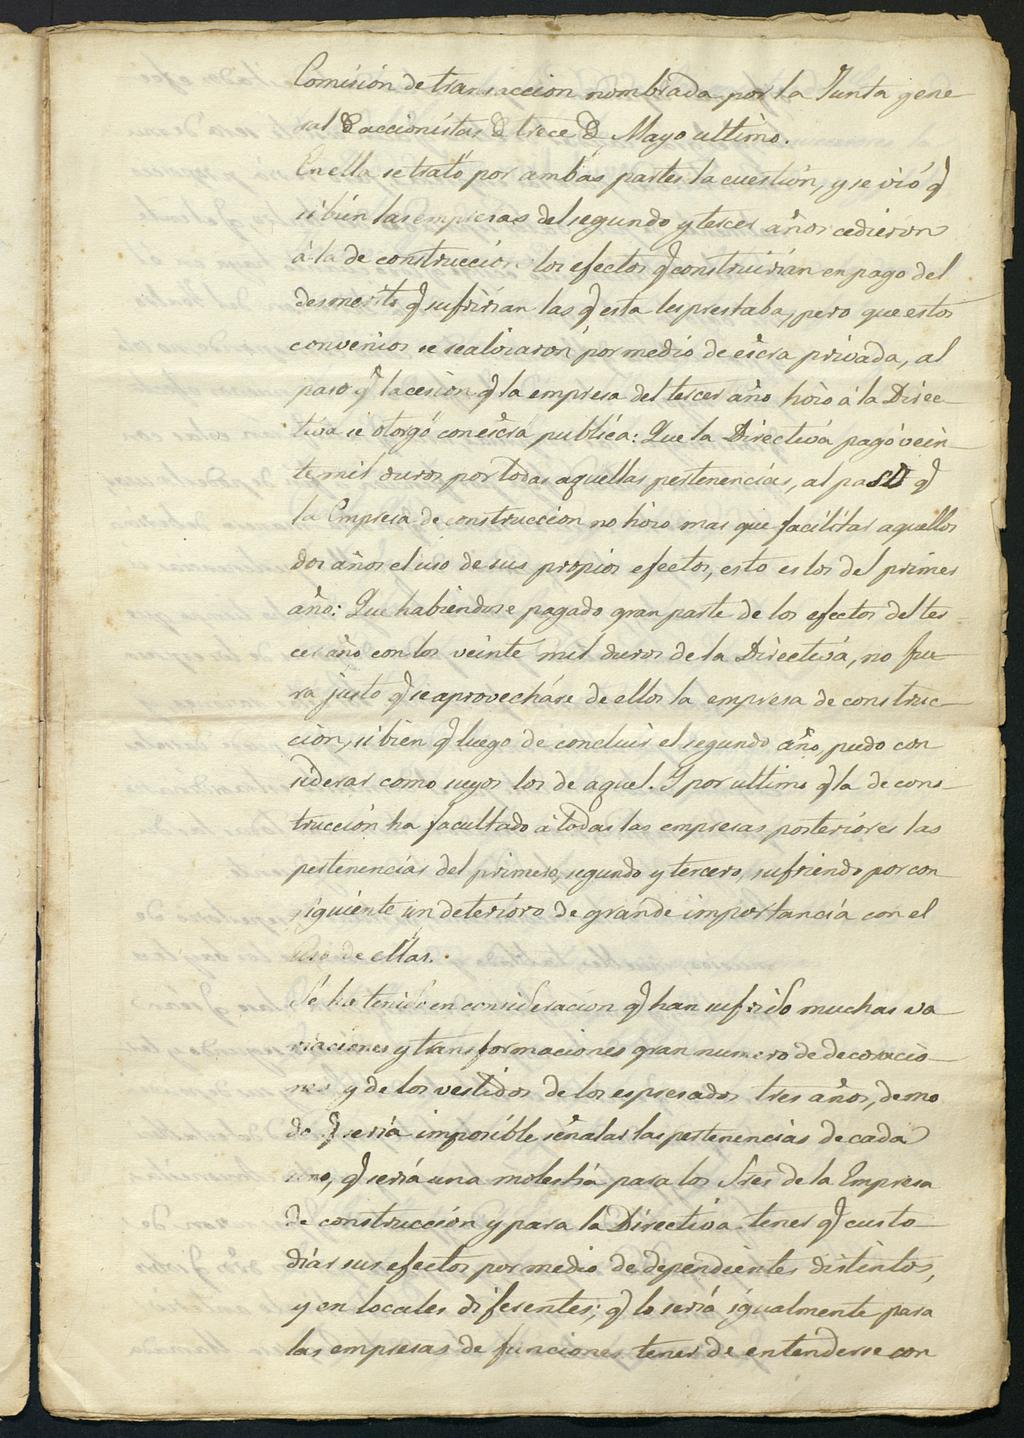 Comision de transaccion nombrada por la Junta gene
ral de accionistas de trece de Mayo ultimo.
En ella se trató por ambas partes la cuestion, y se vió q̃
si bien las empresas del segundo y tercer años cedieron
á la de construccion los efectos q̃ construirian en pago del
desmerito q̃ sufririan las q̃ esta les prestaba, pero que estos
convenios se realizaron por medio de escra privada, al
paso q̃ la cesion q̃ la empresa del tercer año hizo á la Direc-
tiva se otorgó con escra publica: Que la Directiva pagó vein
te mil duros por todas aquellas pertenencias, al paso q̃
la Empresa de construccion no hizo mas que facilitar aquellos
dos años el uso de sus propios efectos, esto es los del primer
año: Que habiendose pagado gran parte de los efectos del ter-
cer año con los veinte mil duros de la Directiva, no fue
ra justo q̃ se aprovecháse de ellos la empresa de construc-
cion, si bien q̃ luego de concluir el segundo año, pudo con
siderar como suyos los de aquel. Y por ultimo q̃ la de cons
truccion ha facultado á todas las empresas posteriores las
pertenencias del primero, segundo y tercero, sufriendo por con
siguiente un deterioro de grande importancia con el
uso de ellas.
Se ha tenido en consideracion q̃ han sufrido muchas va
riaciones y transformaciones gran numero de decoracio-
nes y de los vestidos de los espresados tres años, de mo
do q̃ seria imposible señalar las pertenencias de cada
uno, q̃ seria una molestia para los Sres de la Empresa
de construccion y para la Directiva tener q̃ custo
diar sus efectos por medio de dependientes distintos,
y en locales diferentes; q̃ lo seria igualmente para
las empresas de funciones tener de entenderse con